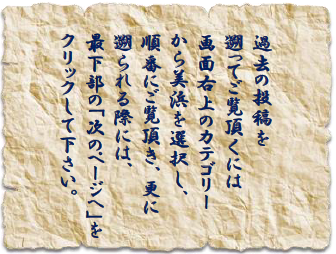 過去の投稿を
遡ってご覧頂くには
画面右上のカテゴリー
から美浜を選択し、
順番にご覧頂き、更に
遡られる際には、
最下部の「次のページへ」を
クリックして下さい。